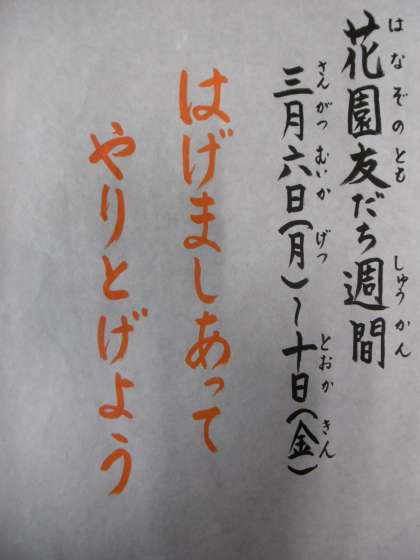 花園友だち週間
はなぞのとも しゅうかん
三月六日(月)~十日(金)
さんがつ むいか げつ とおか きん
はげましあって
やりとげよう